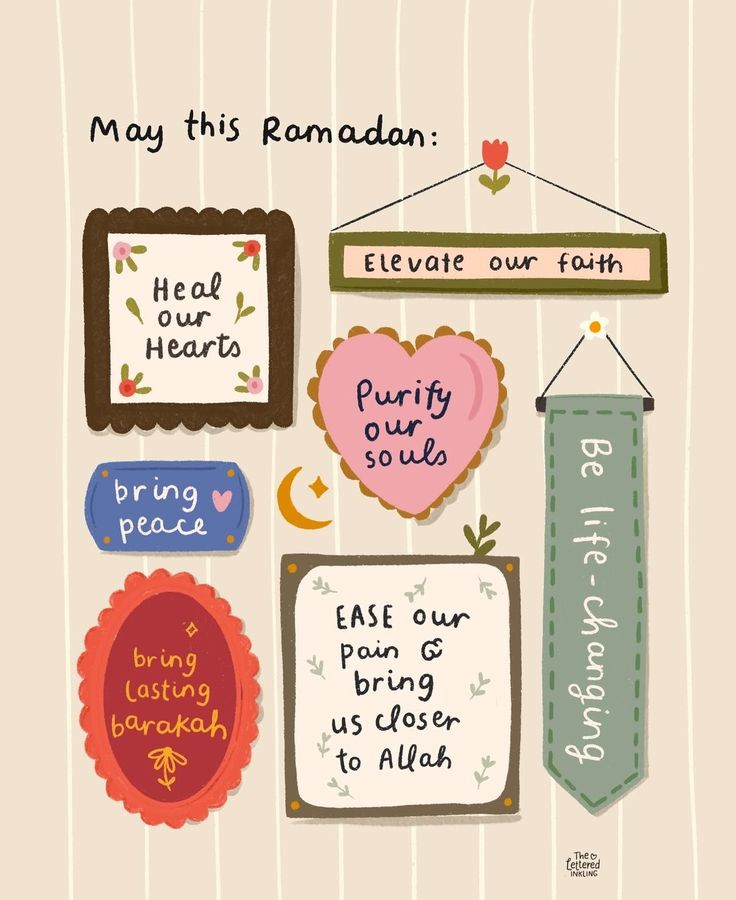 May this Ramadan:
Elevate our faith
Heal
our
Hearts
Purify
our
souls
Be life-changing
bring
peace
bring
lasting
barakah
EASE our
pain &
bring
us closer
to Allah
The
Lettered
INKLING